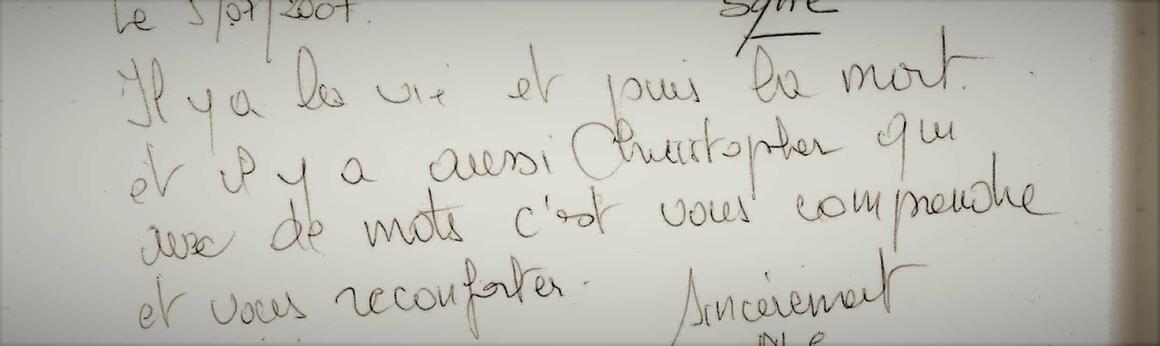 le 5/07/2007.
Il y a la vie et puis la mort.
et il y a aussi Christopher qui
avec de mots c'est vous comprendre
et vous reconforter.
Sincérement